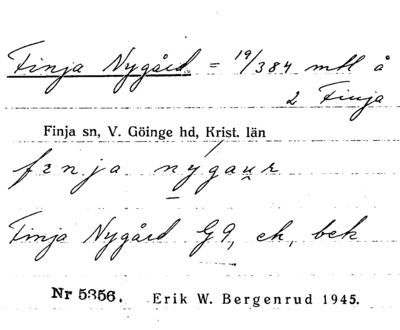 Finja Nygård = 19/384 mtl å
2 Finja
Finja sn, V. Göinge hd, Krist. län
fɪnja nýga̠u̯r
Finja Nygård G9, ek, bek
Nr 5356. Erik W. Bergenrud 1945.